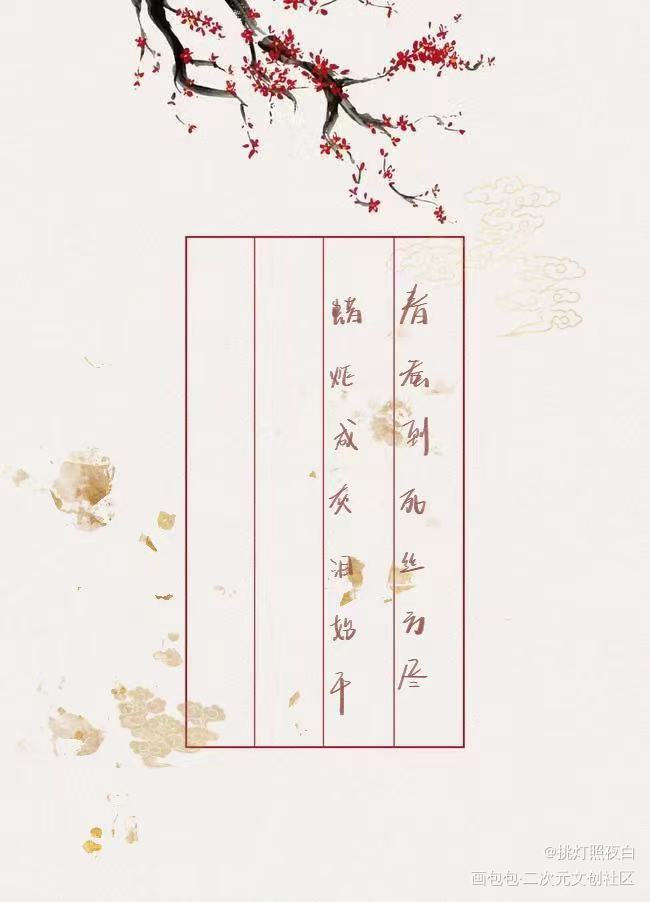 春蚕到死丝方尽
蜡炬成灰泪始干
@挑灯照夜白
画包包·二次元文创社区